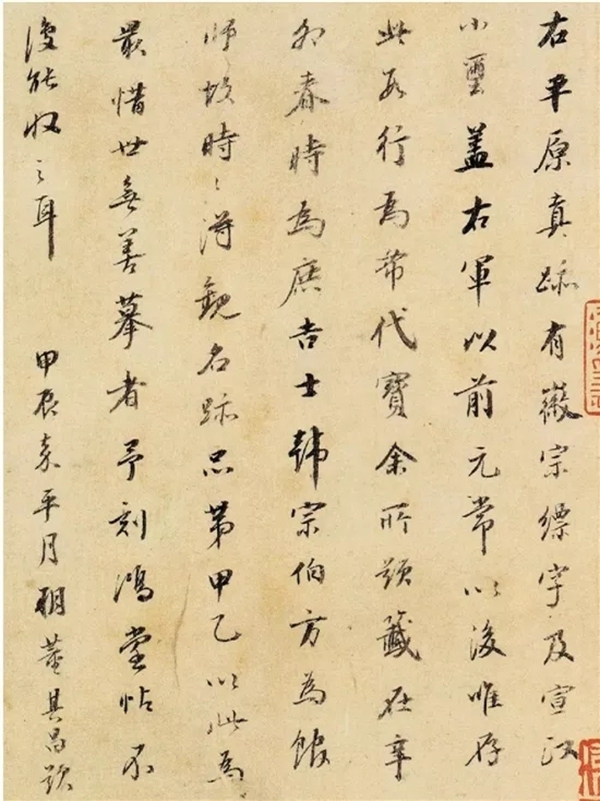 右平原真跡有徽宗縹字及宣和
小璽蓋右軍以前元常以後唯存
此數行為希代寶余所題籤在辛
卯春時為庶吉士韓宗伯方為館
師故時々得觀名跡品第甲乙以此為
最惜世無善摹者予刻鴻堂帖不
復能收之耳 甲辰嘉平月朔董其昌題